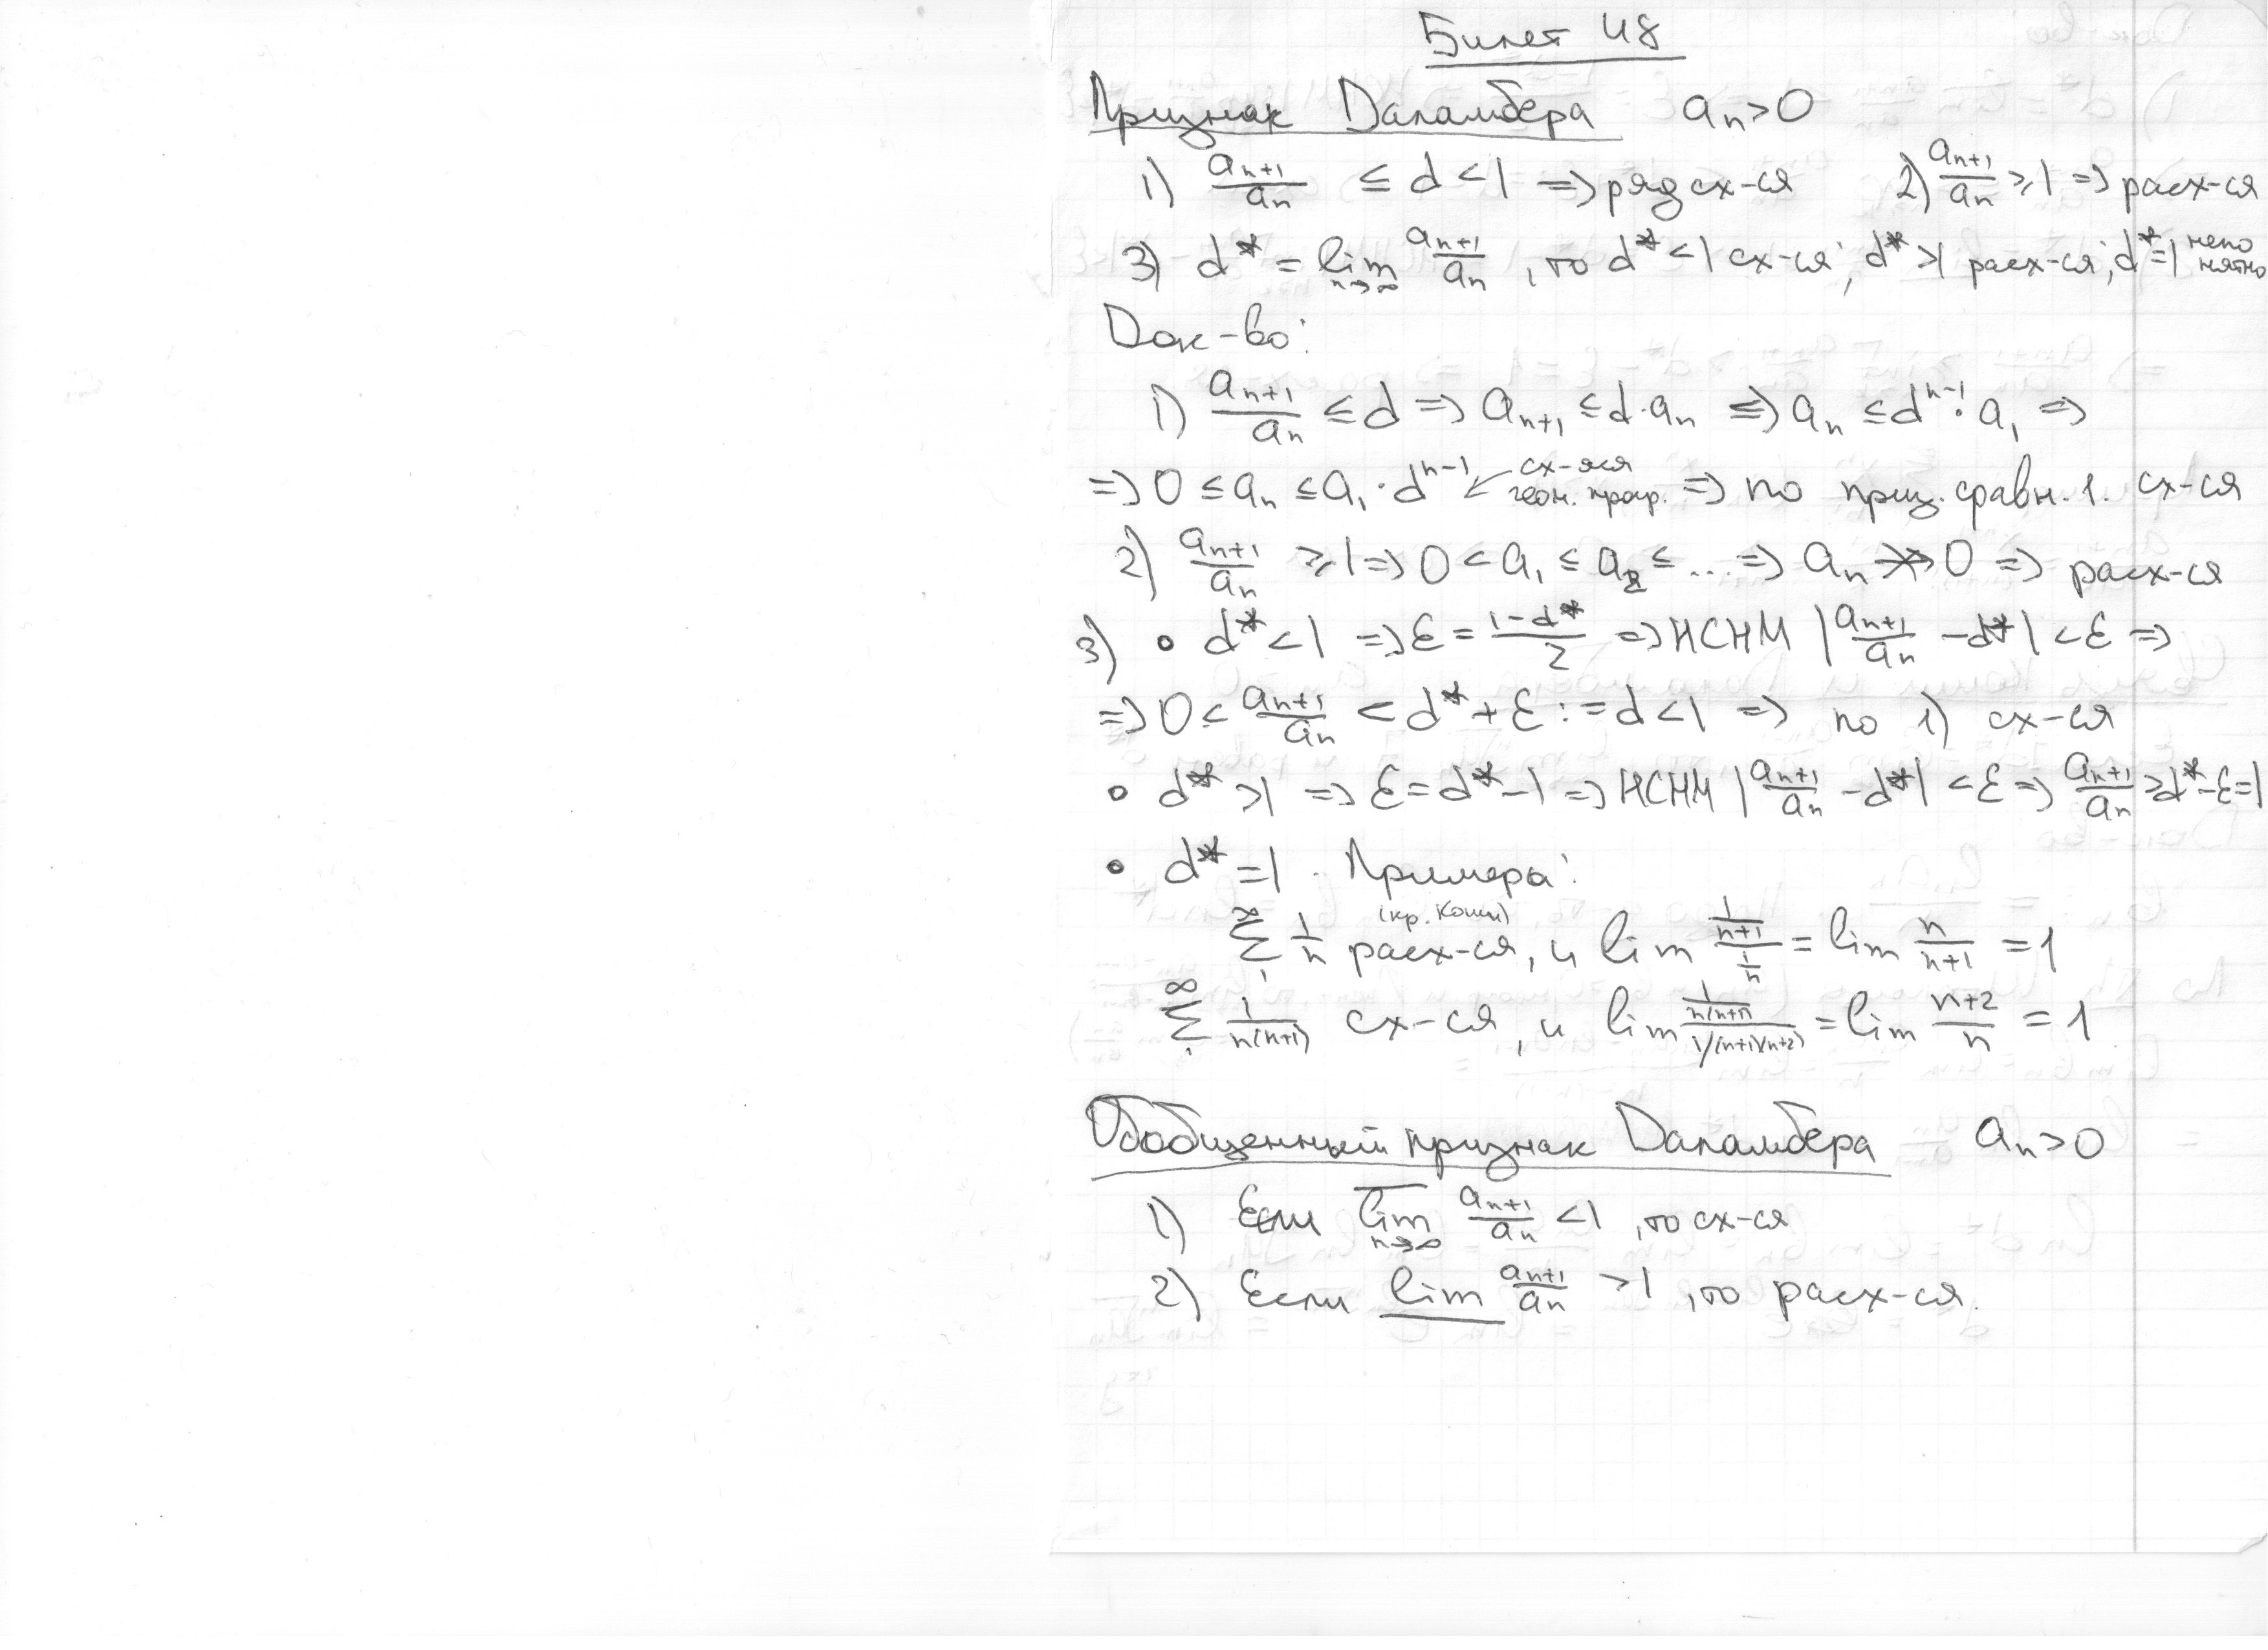 Билет 48
Признак Даламбера aₙ>0
1) aₙ₊₁/aₙ ≤ d < 1 => ряд сх-ся 2) aₙ₊₁/aₙ ≥ 1 => расх-ся
3) d* = lim n→∞ aₙ₊₁/aₙ, то d* < 1 сх-ся; d* > 1 расх-ся; d* = 1 непонятно
Док-во:
1) aₙ₊₁/aₙ ≤ d => aₙ₊₁ ≤ d·aₙ => aₙ ≤ dⁿ⁻¹·a₁ =>
=> 0 ≤ aₙ ≤ a₁·dⁿ⁻¹ ↙ сх-яся геом. прогр. => по приз. сравн. 1. сх-ся
2) aₙ₊₁/aₙ ≥ 1 => 0 < a₁ ≤ a₂ ≤ ... => aₙ ↛ 0 => расх-ся
3) • d* < 1 => ε = (1-d*)/2 => НСНМ |aₙ₊₁/aₙ - d*| < ε =>
=> 0 ≤ aₙ₊₁/aₙ < d* + ε := d < 1 => по 1) сх-ся
• d* > 1 => ε = d* - 1 => НСНМ |aₙ₊₁/aₙ - d*| < ε => aₙ₊₁/aₙ ≥ d* - ε = 1
• d* = 1. Примеры:
∑₁^∞ 1/n расх-ся (кр. Коши), и lim (1/(n+1))/(1/n) = lim n/(n+1) = 1
∑₁^∞ 1/(n(n+1)) сх-ся, и lim (1/(n(n+1)))/(1/(n+1)(n+2)) = lim (n+2)/n = 1
Обобщенный признак Даламбера aₙ>0
1) Если l̅i̅m̅ n→∞ aₙ₊₁/aₙ < 1, то сх-ся
2) Если l̲i̲m̲ aₙ₊₁/aₙ > 1, то расх-ся.